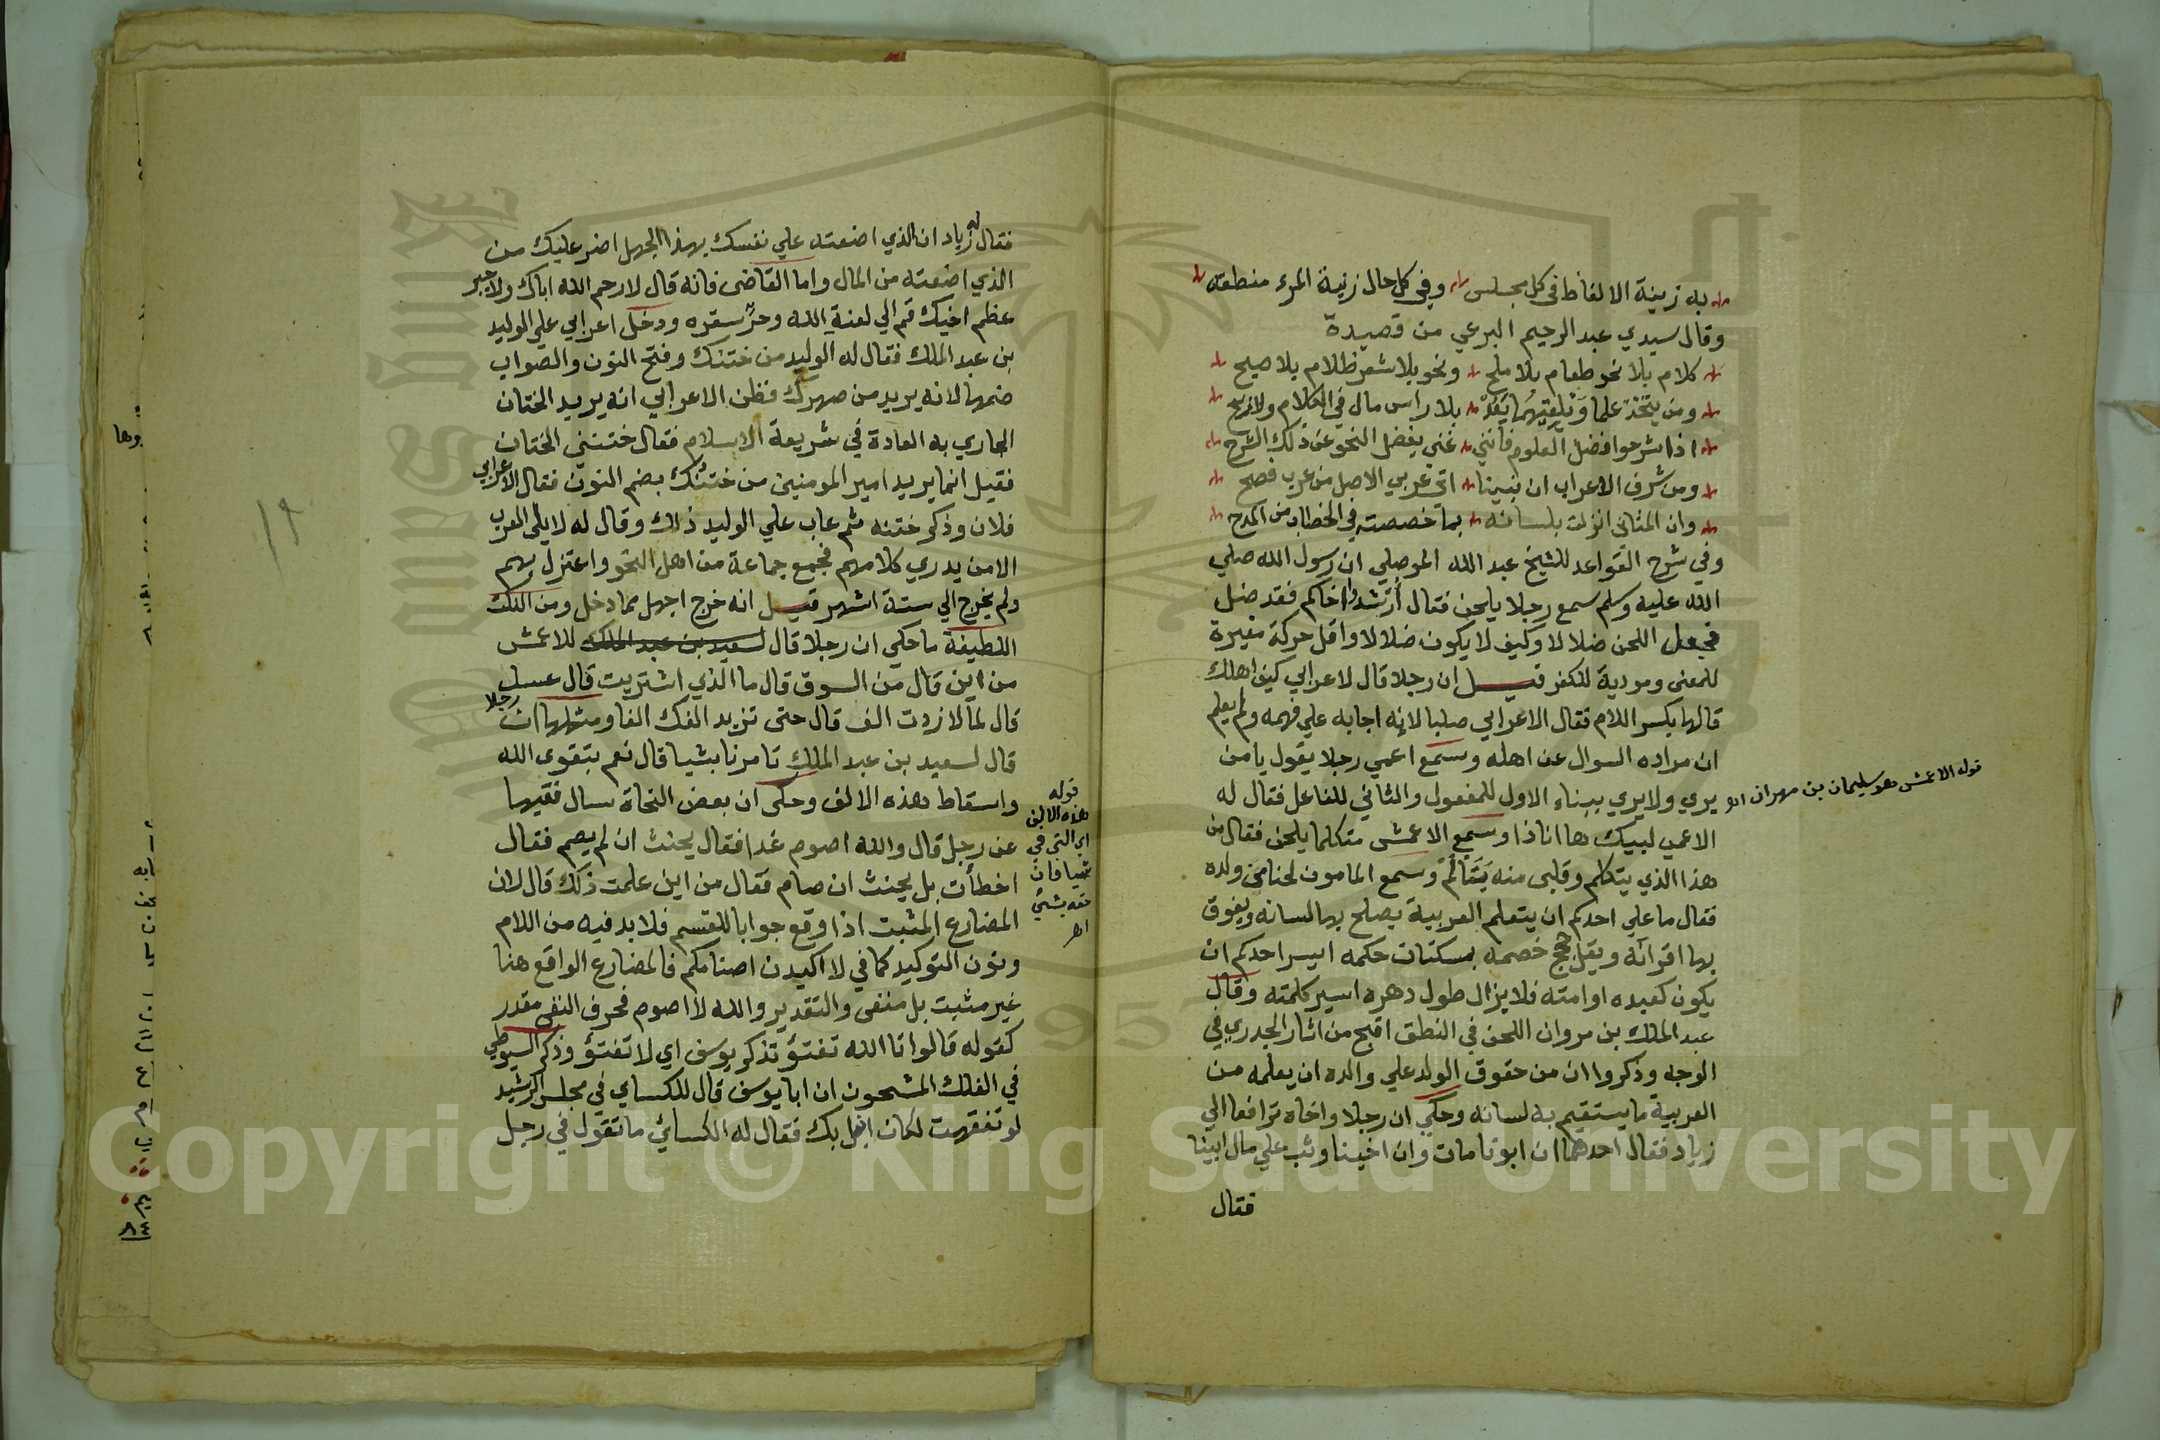 به زينة الالفاظ في كل مجلس وفي كل حال زينة المرء منطقه
وقال سيدي عبد الرحيم البرعي من قصيدة
كلام بلا نحو طعام بلا ملح ونحو بلا شعر ظلام بلا صبح
ومن يتخذ علما ويلغيهما يعد بلا راس مال في الكلام ولا ربح
اذا شرحوا فضل العلوم فانني غني بفضل النحو عن ذلك الشرح
ومن شرف الاعراب ان نبينا اتى عربي الاصل من عرب فصح
وان المثاني انزلت بلسانه بما خصصته في الخطاب من المدح
وفي شرح القواعد للشيخ عبد الله الموصلي ان رسول الله صلي
الله عليه وسلم سمع رجلا يلحن فقال ارشدوا اخاكم فقد ضل
فجعل اللحن ضلالا وكيف لا يكون ضلالا واقل حركة مغيرة
للمعنى ومودية للكفر قيل ان رجلا قال لاعرابي كيف اهلك
قالها بكسر اللام فقال الاعرابي صلبا لانه اجابه علي فهمه ولم يعلم
ان مراده السوال عن اهله وسمع اعمي رجلا يقول يا من
يري ولا يري ببناء الاول للمفعول والثاني للفاعل فقال له
قوله الاعمش هو سليمان بن مهران اه
الاعمي لبيك ها انا ذا وسمع الاعمش متكلما يلحن فقال من
هذا الذي يتكلم وقلبي منه يتالم وسمع المامون لحنا من ولده
فقال ما علي احدكم ان يتعلم العربية يصلح بها لسانه ويفوق
بها اقرانه ويقل حجج خصمه بمسكتات حكمه ايسر احدكم ان
يكون كعبده او امته فلا يزال طول دهره اسير كلمته وقال
عبد الملك بن مروان اللحن في النطق اقبح من اثار الجدري في
الوجه وذكروا ان من حقوق الولد علي والده ان يعلمه من
العربية ما يستقيم به لسانه وحكي ان رجلا واخاه ترافعا الي
زياد فقال احدهما ان ابونا مات وان اخينا وثب علي مال ابينا
فقال
فقال له زياد ان الذي اضعته علي نفسك بهذا الجهل اضر عليك من
الذي اضعته من المال واما القاضى فانه قال لا رحم الله اباك ولا جبر
عظم اخيك قم الي لعنة الله وحر سقره ودخل اعرابي علي الوليد
بن عبد الملك فقال له الوليد من ختنك وفتح النون والصواب
ضمها لانه يريد من صهرك فظن الاعرابي انه يريد الختان
الجاري به العادة في شريعة الاسلام فقال ختنني الختان
فقيل انما يريد امير المومنين من ختنك بضم النون فقال الاعرابي
فلان وذكر ختنه ثم عاب علي الوليد ذلك وقال له لا يلى العرب
الا من يدري كلامهم فجمع جماعة من اهل النحو واعتزل بهم
ولم يخرج الي ستة اشهر قيل انه خرج اجهل مما دخل ومن النكت
اللطيفة ما حكي ان رجلا قال لسعيد بن عبد الملك للاعمش
من اين قال من السوق قال ما الذي اشتريت قال عسل
قال لم لا زدت الف قال حتى تزيد الفك الفا ومثلها ان رجلا
قال لسعيد بن عبد الملك تامرنا بشيا قال نعم بتقوى الله
واسقاط هذه الالف وحكى ان بعض النحاة سال فقيها
قوله
هذه الالف
اي التي في
شيا فان
حقه بشئ
اه
عن رجل قال والله اصوم غدا فقال يحنث ان لم يصم فقال
اخطأت بل يحنث ان صام فقال من اين علمت ذلك قال لان
المضارع المثبت اذا وقع جوابا للقسم فلا بد فيه من اللام
ونون التوكيد كما في لاكيدن اصنامكم فالمضارع الواقع هنا
غير مثبت بل منفى والتقدير والله لا اصوم فحرف النفى مقدر
كقوله قالوا تا الله تفتؤ تذكر يوسف اي لا تفتؤ وذكر السيوطي
في الفلك المشحون ان ابا يوسف قال للكساي في مجلس الرشيد
لو تفقهت لكان انبل بك فقال له الكسائي ما تقول في رجل
١٩
Copyright © King Saud University